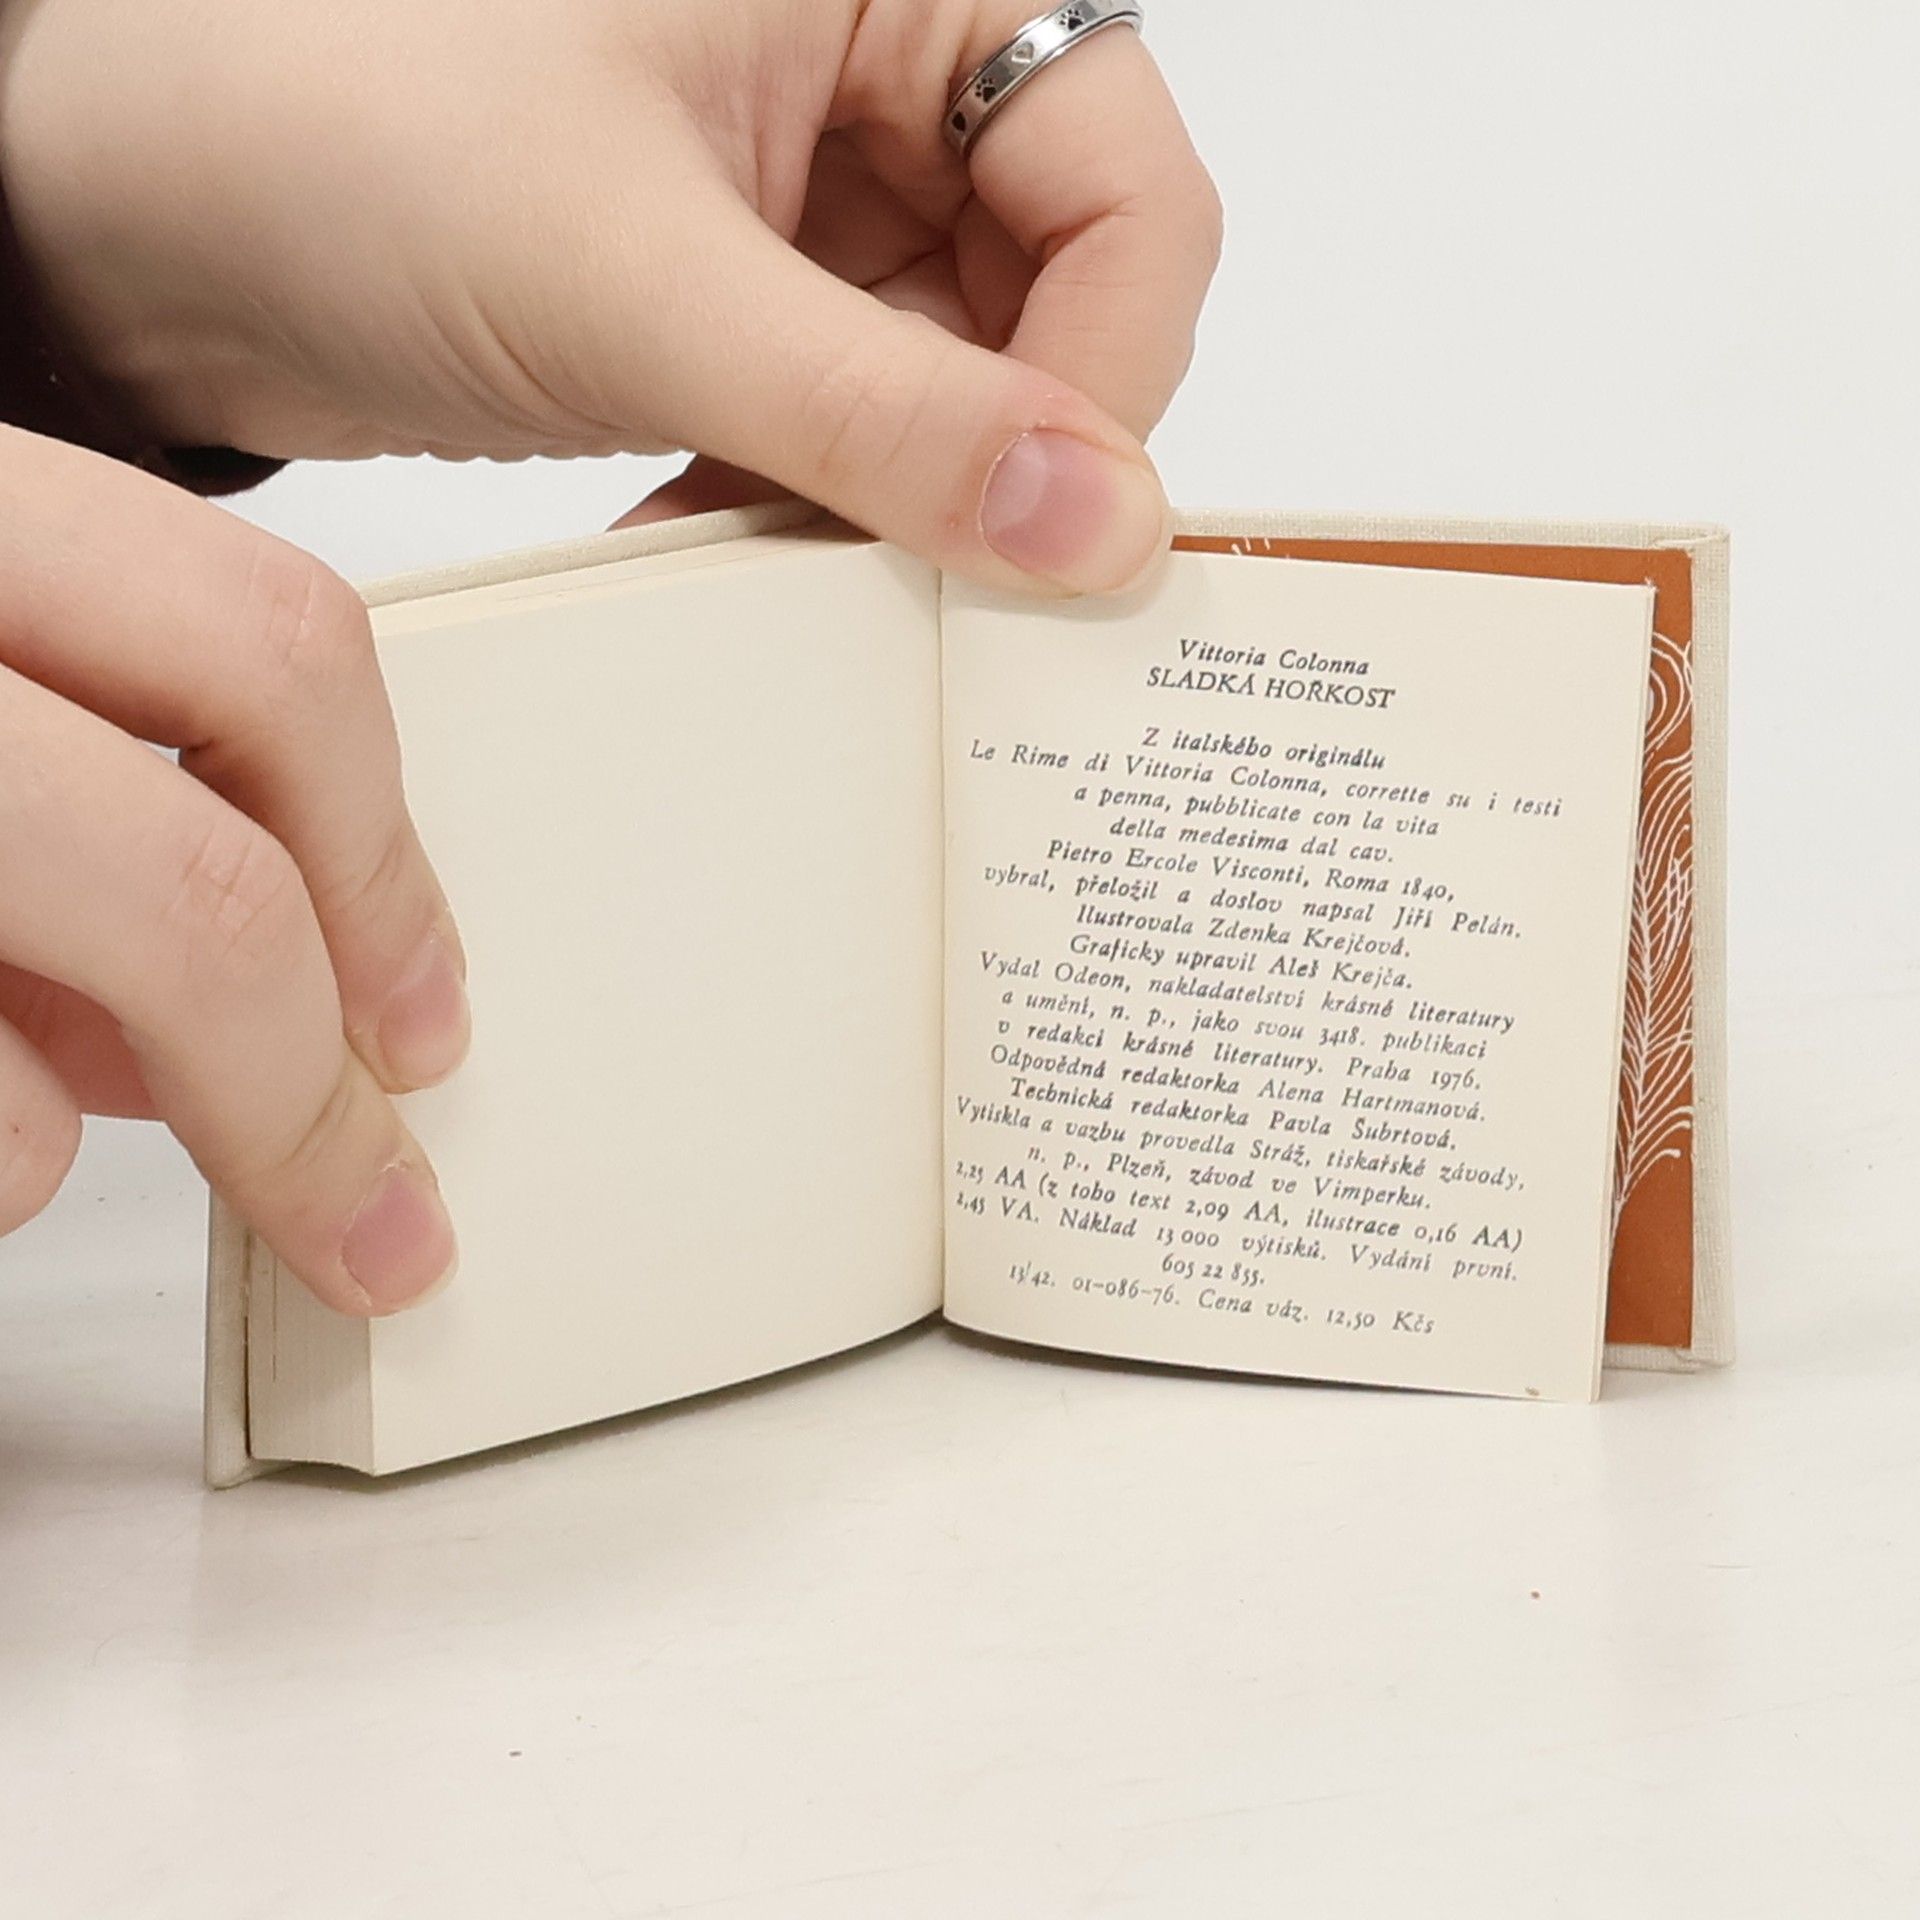 Vittoria Colonna
SLADKÁ HOŘKOST
Z italského originálu
Le Rime di Vittoria Colonna, corrette su i testi
a penna, pubblicate con la vita
della medesima dal cav.
Pietro Ercole Visconti, Roma 1840,
vybral, přeložil a doslov napsal Jiří Pelán.
Ilustrovala Zdenka Krejčová.
Graficky upravil Aleš Krejča.
Vydal Odeon, nakladatelství krásné literatury
a umění, n. p., jako svou 3418. publikaci
v redakci krásné literatury. Praha 1976.
Odpovědná redaktorka Alena Hartmanová.
Technická redaktorka Pavla Šubrtová.
Vytiskla a vazbu provedla Stráž, tiskařské závody,
n. p., Plzeň, závod ve Vimperku.
2,25 AA (z toho text 2,09 AA, ilustrace 0,16 AA)
2,45 VA. Náklad 13 000 výtisků. Vydání první.
605 22 855.
13/42. 01–086–76. Cena váz. 12,50 Kčs